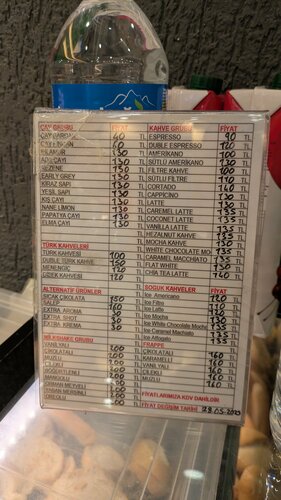 ÇAY GRUBU FİYAT
ÇAY BARDAK 40 TL
ÇAY FİNCAN 60 TL
IHLAMUR 130 TL
ADA ÇAYI 130 TL
REZENE 150 TL
EARLY GREY 130 TL
KİRAZ SAPI 130 TL
YEŞİL SAPI 130 TL
KIŞ ÇAYI 130 TL
NANE LİMON 130 TL
PAPATYA ÇAYI 130 TL
ELMA ÇAYI 130 TL
TÜRK KAHVELERİ
TÜRK KAHVESİ 100 TL
DUBLE TÜRK KAHVESİ 150 TL
MENENGİÇ 120 TL
DİBEK KAHVESİ 120 TL
ALTERNATİF ÜRÜNLER
SICAK ÇİKOLATA 150 TL
SALEP 160 TL
EXTRA AROMA 30 TL
EXTRA SHOT 30 TL
EXTRA KREMA 30 TL
MİLKSHAKE GRUBU
VANİLYALI 200 TL
ÇİKOLATALI 200 TL
ÇİLEKLİ 200 TL
BÖĞÜRTLENLİ 200 TL
MANGOLU 200 TL
ORMAN MEYVELİ 200 TL
YABAN MERSİNLİ 200 TL
OREOLU 200 TL
KAHVE GRUBU FİYAT
ESPRESSO 90 TL
DUBLE ESPRESO 120 TL
AMERİKANO 100 TL
SÜTLÜ AMERİKANO 130 TL
FİLTRE KAHVE 100 TL
SÜTLÜ FİLTRE 110 TL
CORTADO 140 TL
CAPPICINO 130 TL
LATTE 130 TL
CAREMEL LATTE 135 TL
COCONUT LATTE 135 TL
VANILLA LATTE 135 TL
HEZALNUT KAHVE 135 TL
MOCHA KAHVE 130 TL
WHITE CHOCOLATE MO 135 TL
CARAMEL MACCHIATO 135 TL
FLAT WHITE 130 TL
CHIA TEA LATTE 140 TL
SOĞUK KAHVELER FİYAT
Ice Americano 120 TL
Ice Filtre 110 TL
Ice Latte 120 TL
Ice Mocha 130 TL
Ice White Chocolate Mocha 135 TL
Ice Caramel Machiato 135 TL
Ice Affogato 135 TL
FRAPPE
ÇİKOLATALI 160 TL
KARAMELLİ 160 TL
VANİLYALI 160 TL
ÇİLEKLİ 160 TL
MUZLU 160 TL
FİYATLARIMIZA KDV DAHİLDİR
FİYAT DEĞİŞİM TARİHİ 28.05.2025